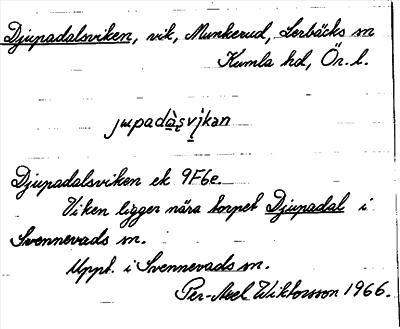 Djupadalsviken, vik, Munkerud, Lerbäcks sn
Kumla hd, Ör. l.
jupadàs̩vi̩kən
Djupadalsviken ek 9F6e.
Viken ligger nära torpet Djupadal i
Svennevads sn.
Uppt. i Svennevads sn.
Per-Axel Wiktorsson 1966.